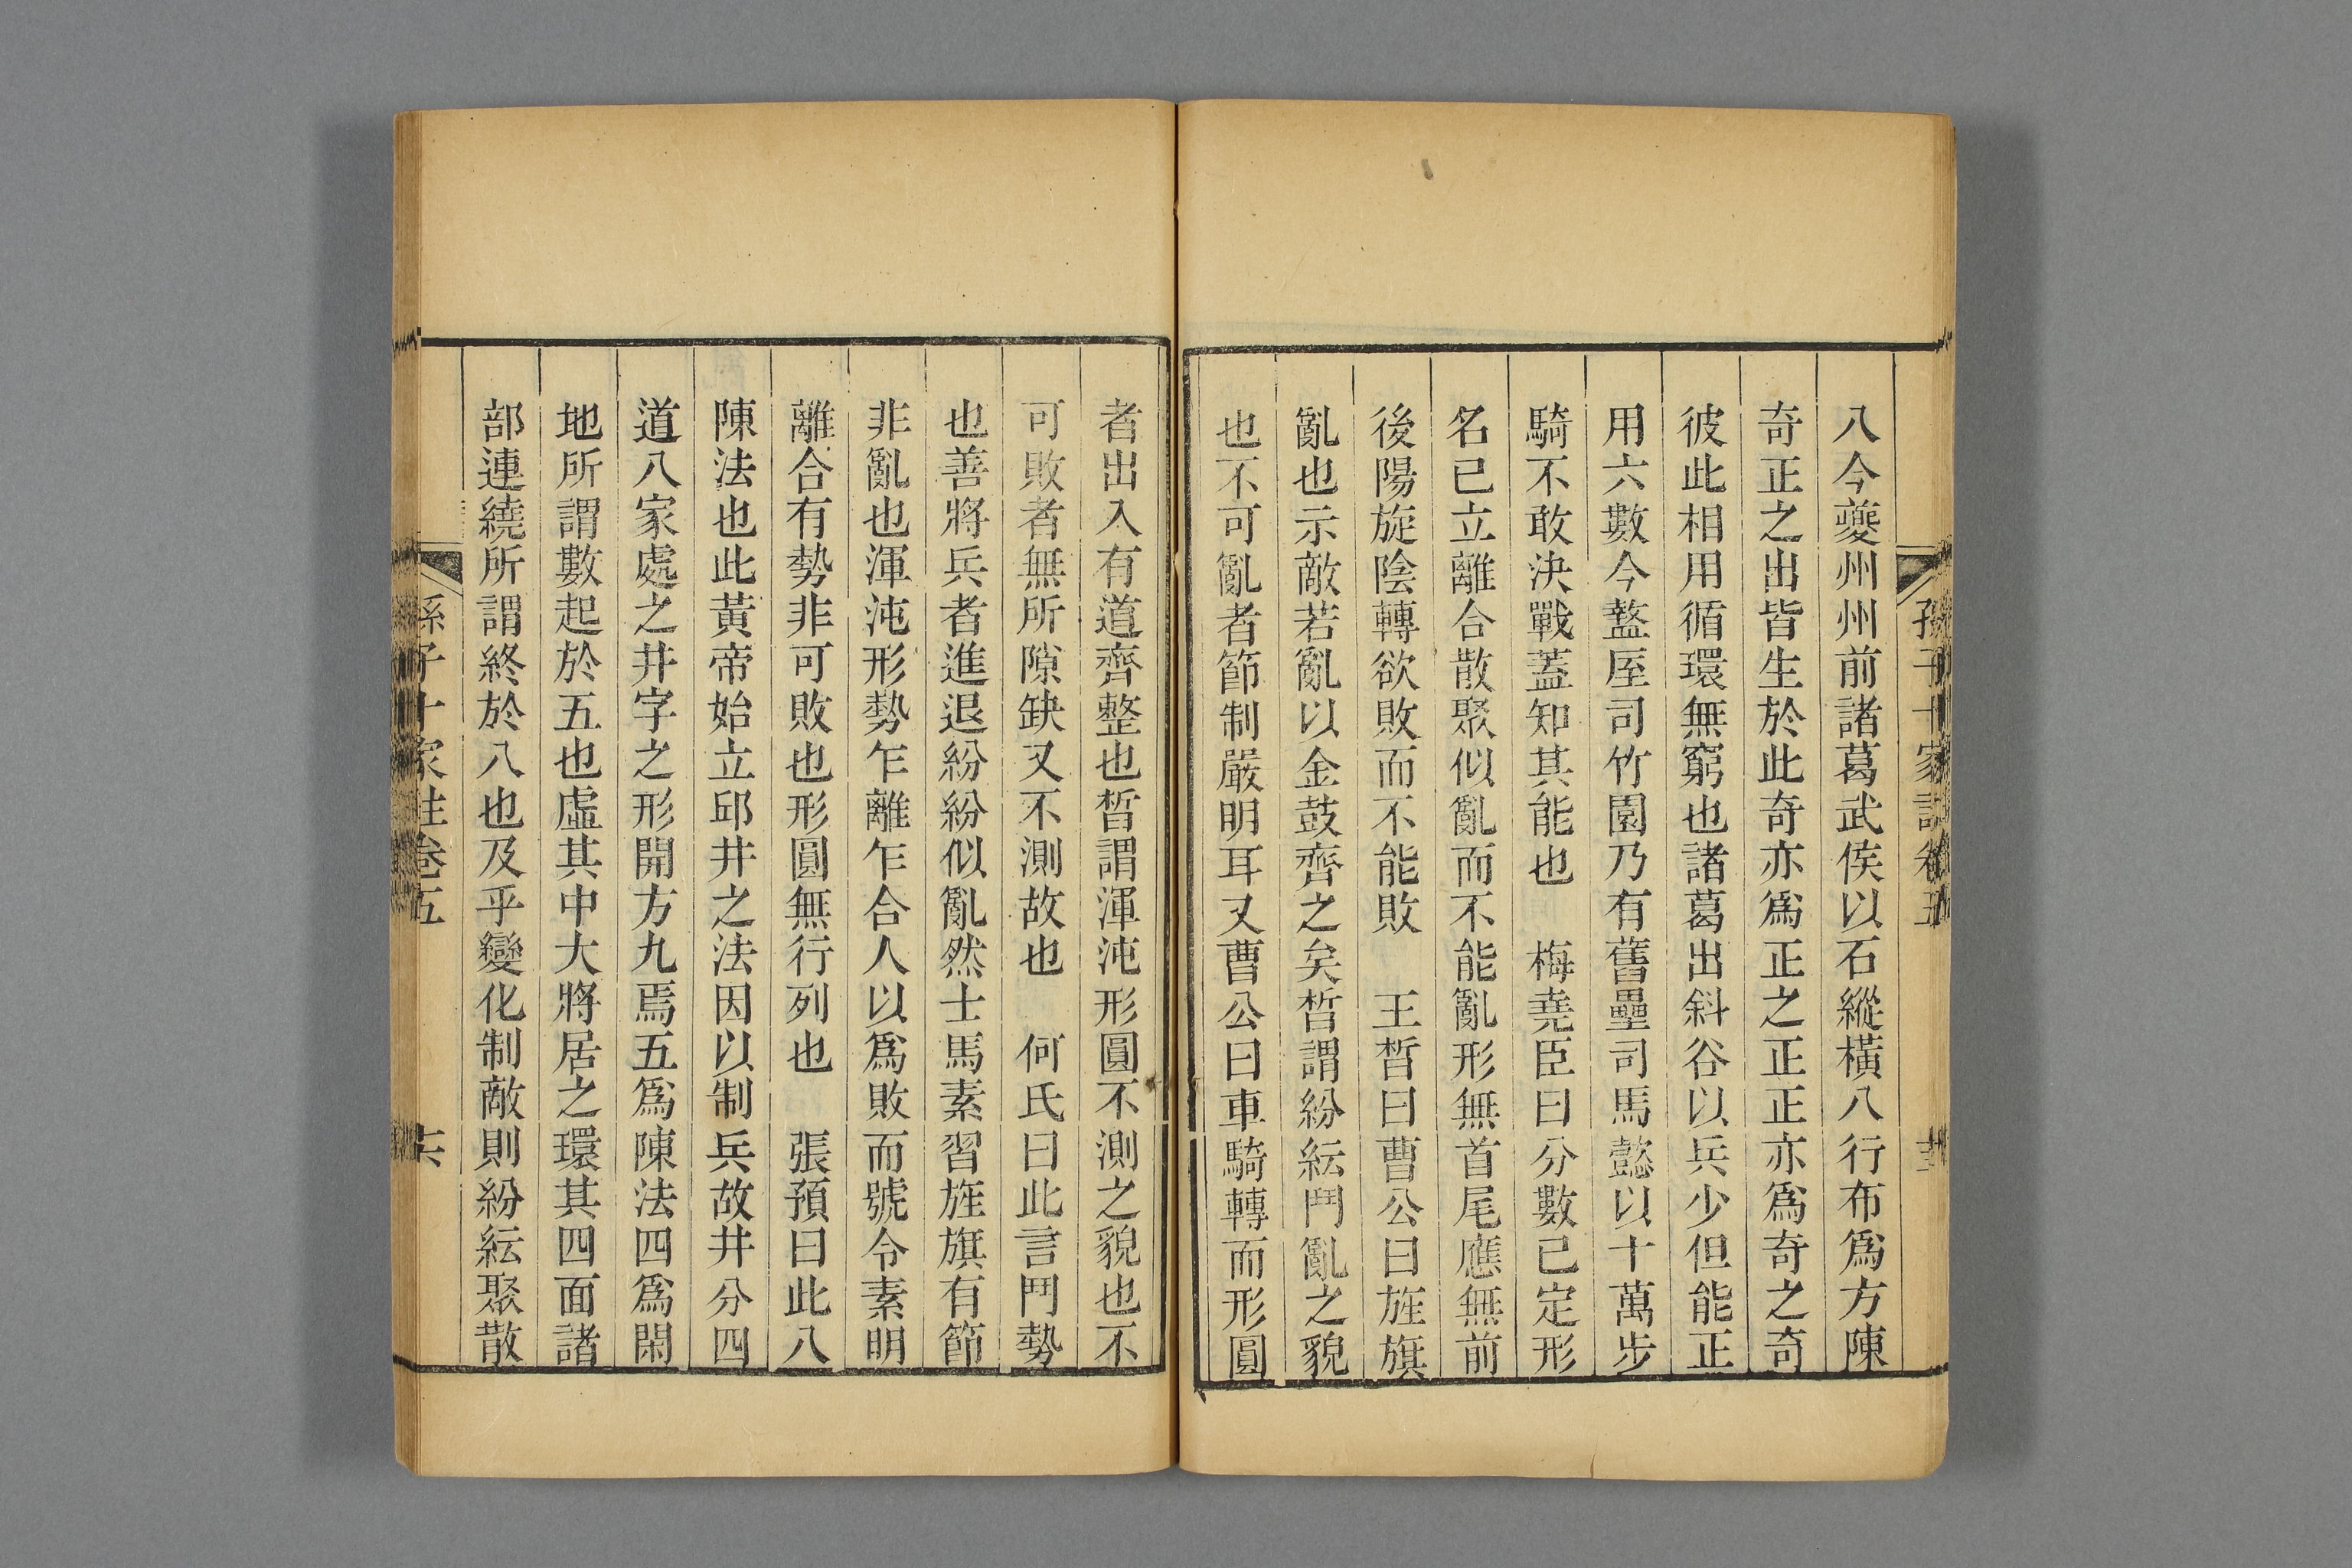 孫子十家註卷五
八今夔州州前諸葛武侯以石縱橫八行布爲方陳
奇正之出皆生於此奇亦爲正之正正亦爲奇之奇
彼此相用循環無窮也諸葛出斜谷以兵少但能正
用六數今盩厔司竹園乃有舊壘司馬懿以十萬步
騎不敢決戰蓋知其能也　梅堯臣曰分數已定形
名已立離合散聚似亂而不能亂形無首尾應無前
後陽旋陰轉欲敗而不能敗　王晳曰曹公曰旌旗
亂也示敵若亂以金鼓齊之矣晳謂紛紜鬥亂之貌
也不可亂者節制嚴明耳又曹公曰車騎轉而形圓
者出入有道齊整也晳謂渾沌形圓不測之貌也不
可敗者無所隙缺又不測故也　何氏曰此言鬥勢
也善將兵者進退紛紛似亂然士馬素習旌旗有節
非亂也渾沌形勢乍離乍合人以爲敗而號令素明
離合有勢非可敗也形圓無行列也　張預曰此八
陳法也此黃帝始立邱井之法因以制兵故井分四
道八家處之井字之形開方九焉五爲陳法四爲閑
地所謂數起於五也虛其中大將居之環其四面諸
部連繞所謂終於八也及乎變化制敵則紛紜聚散
孫子十家註卷五